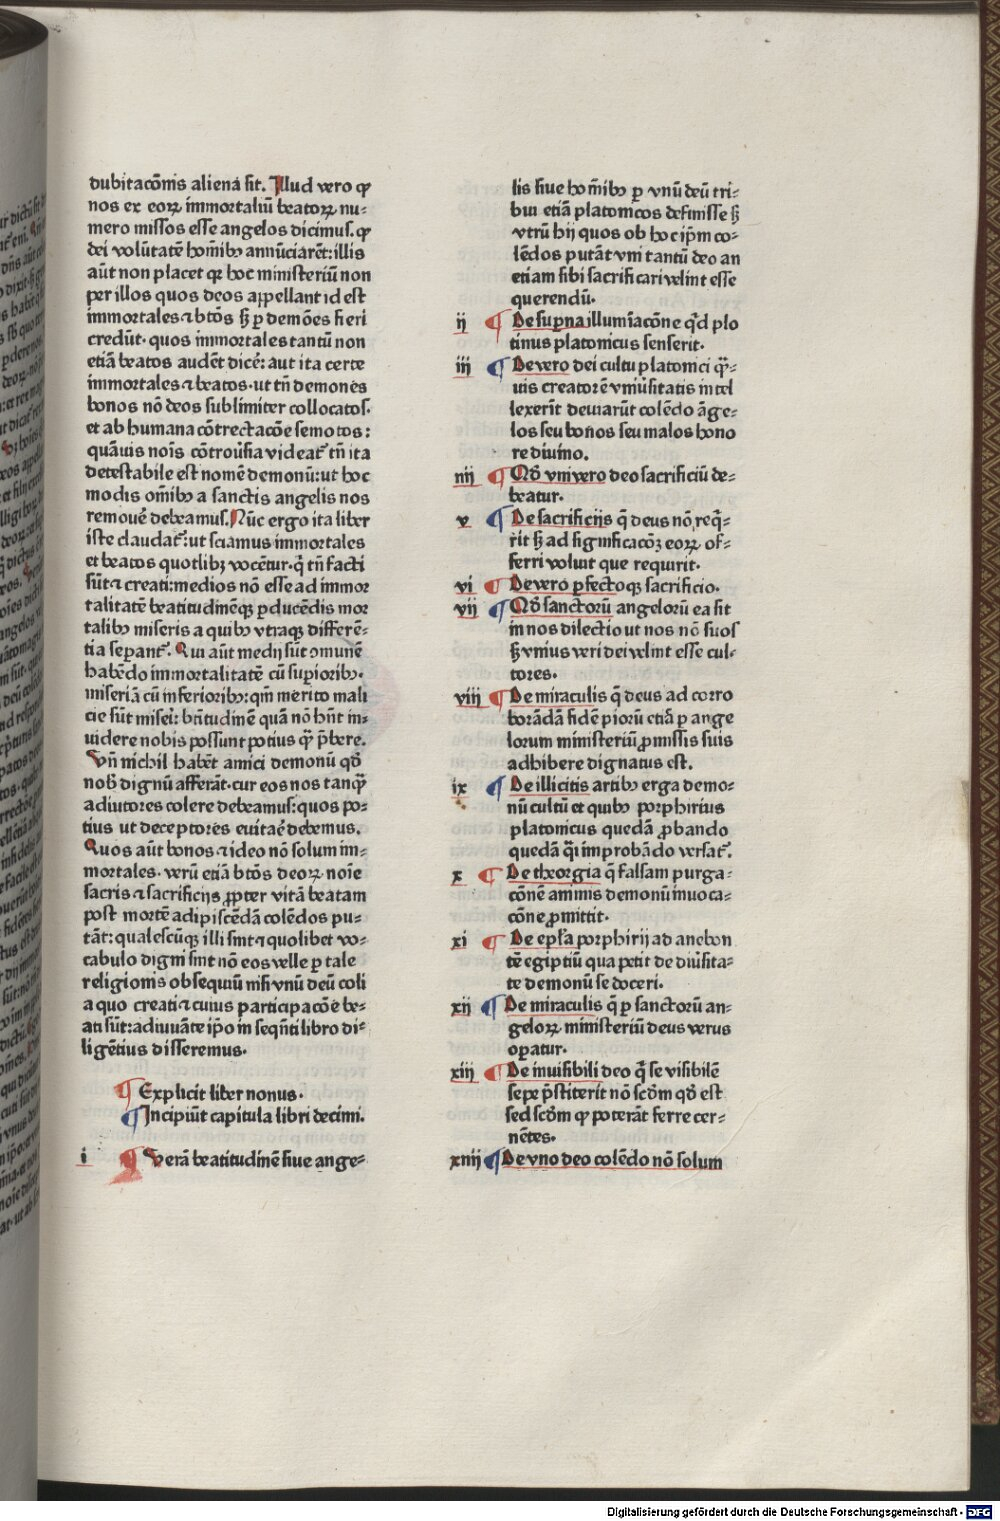 dubitac̄onis aliena sit. Illud vero ꝙ
nos ex eoꝝ immortaliū beatoꝝ nu⸗
mero missos esse angelos dicimus. ꝙ
dei volūtatē hom̄ibꝫ annūciarēt: illis
aūt non placet qꝛ hoc ministeriū non
per illos quos deos appellant id est
immortales ⁊ btōs sꝫ ꝑ demōes fieri
credūt. quos immortales tantū non
etiā beatos audēt dicē: aut ita certe
immortales ⁊ beatos. ut tn̄ demones
bonos nō deos sublimiter collocatos.
et ab humana cōtrectac̄oe semotos:
quāuis nois̄ cōtrou̓sia videat᷑ tn̄ ita
detestabile est nomē demonū: ut hoc
modis om̄ibꝫ a sanctis angelis nos
remouē debeamus. Nūc ergo ita liber
iste claudat᷑: ut sciamus immortales
et beatos quotlibꝫ vocētur. q̄ tn̄ facti
sūt ⁊ creati: medios nō esse ad immor
talitatē beatitudinēqꝫ ꝑducēdis mor
talibꝫ miseris a quibꝫ vtraqꝫ differē⸗
tia seperant᷑. Qui aūt medij sūt ꝯmunē
habēdo immortalitatē cū suꝑioribꝫ.
miseriā cū inferioribꝫ: qm̄ merito mali
cie sūt miseri: btītudinē quā nō hn̄t in⸗
uidere nobis possunt potius qꝫ̄ p̄bere.
Vn̄ nichil habēt amici demonū qd̄
nobꝫ dignū afferāt. cur eos nos tanqꝫ̄
adiutores colere debeamus: quos po⸗
tius ut deceptores euitaē debemus.
Quos aūt bonos ⁊ ideo nō solum im⸗
mortales. verū etiā btōs deoꝝ noīe
sacris ⁊ sacrificijs ꝓpter vitā beatam
post mortē adipiscēdā colēdos pu⸗
tāt: qualescūqꝫ illi sint ⁊ quolibet vo⸗
cabulo digni sint nō eos velle ꝑ tale
religionis obsequiū nisi vnū deū coli
a quo creati ⁊ cuius participac̄oē be⸗
ati sūt: adiuuāte ip̄o in seqn̄ti libro di⸗
ligētius disseremus.
¶ Explicit liber nonus.
¶ Incipiūt capitula libri decimi.
i ¶ Verā beatitudinē siue ange⸗
lis siue hom̄ibꝫ ꝑ vnū deū tri⸗
bui etiā platonicos definisse sꝫ
vtrū hij quos ob hoc ip̄m co⸗
lēdos putāt vni tantū deo an
etiam sibi sacrificari velint esse
querendū.
ij ¶ De suꝑna illumīac̄one qd̄ plo
tinus platonicus senserit.
iij ¶ De vero dei cultu platonici qꝫ̄⸗
uis creatorē vniu̓sitatis intel
lexerīt deuiarūt colēdo āge⸗
los seu bonos seu malos hono
re diuino.
iiij ¶ Qd̄ vni vero deo sacrificiū de⸗
beatur.
v ¶ De sacrificijs q̄ deus nō req̄⸗
rit sꝫ ad significac̄oꝫ eoꝝ of⸗
ferri voluit que requirit.
vi ¶ De vero ꝑfectoqꝫ sacrificio.
vij ¶ Qd̄ sanctorū angelorū ea sit
in nos dilectio ut nos nō suos
sꝫ vnius veri dei velint esse cul⸗
tores.
viij ¶ De miraculis q̄ deus ad corro
borādā fidē piorū etiā ꝑ ange
lorum ministeriū ꝓmissis suis
adhibere dignatus est.
ix ¶ De illicitis artibꝫ erga demo⸗
nū cultū et quibꝫ porphirius
platonicus quedā ꝓbando
quedā q̄si improbādo versat᷑.
x ¶ De theorgia q̄ falsam purga⸗
c̄onē animis demonū inuoca⸗
c̄one ꝓmittit.
xi ¶ De epl̄a porphirij ad anebon
tē egiptiū qua petit de diu̓sita⸗
te demonū se doceri.
xij ¶ De miraculis q̄ ꝑ sanctorū an⸗
geloꝝ ministeriū deus verus
oꝑatur.
xiij ¶ De inuisibili deo q̄ se visibilē
sepe p̄stiterit nō scd̄m qd̄ est
sed scd̄m qꝫ poterāt ferre cer⸗
nētes.
xiiij ¶ De vno deo colēdo nō solum
Digitalisierung gefördert durch die Deutsche Forschungsgemeinschaft - DFG